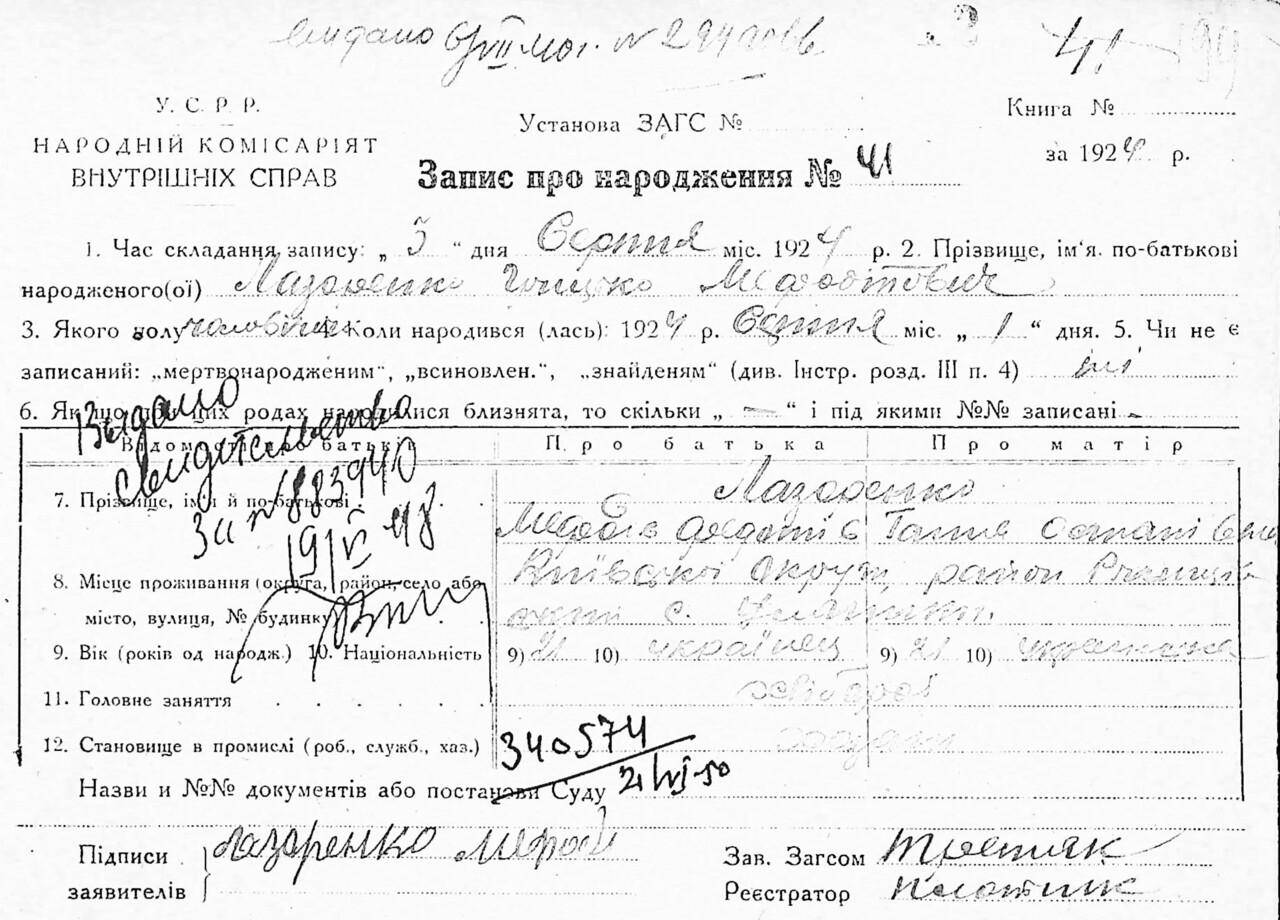 видано
У. С. Р. Р.
НАРОДНІЙ КОМІСАРІЯТ
ВНУТРІШНІХ СПРАВ
Установа ЗАГС №
Книга №
за 1924 р.
Запис про народження № 41
1. Час складання запису: „ 3 “ дня Серпня міс. 1924 р. 2. Прізвище, ім‘я. по-батькові
народженого(ої) Лазаренко Грицько Мефодтович
3. Якого полу 4. Коли народився (лась): 1924 р. Серпня міс. „ 1 “ дня. 5. Чи не є
записаний: „мертвонародженим“, „всиновлен.“, „знайденям“ (див. Інстр. розд. III п. 4) ні
6. Якщо при цих родах народилися близнята, то скільки „ — “ і під якими №№ записані -
Видано
Свидетельство
За № 883940
19/VI 48
Відомості про батьків
Про батька Про матір
7. Прізвище, ім‘я й по-батькові
Лазаренко
Мефодів Ганна Остапівна
8. Місце проживання (округа, район, село або
місто, вулиця, № будинку
Київської округи, район
с.
9. Вік (років од народж.) 10. Національність
9) 21 10) українец 9) 21 10) українка
11. Головне заняття
хлібороб
12. Становище в промислі (роб., служб., хаз.)
340574
21/VI-50
Назви и №№ документів або постанови Суду
Підписи
заявителів
Лазаренко Мефодій
Зав. Загсом Третяк
Реєстратор